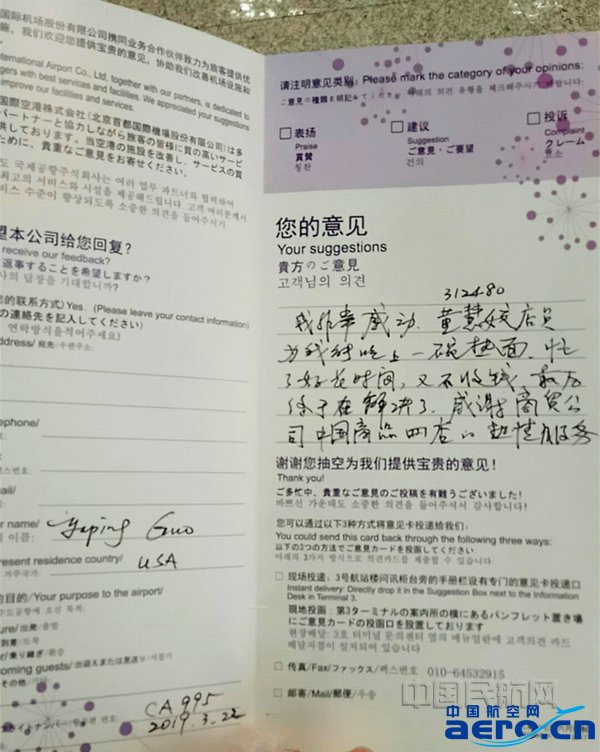 国际机场股份有限公司携同业务合作伙伴致力为旅客提供优
施，我们欢迎您提供宝贵的意见，协助我们改善机场设施和
ternational Airport Co., Ltd, together with our partners, is dedicated to
gers with best services and facilities. We appreciated your suggestions
improve our facilities and services.
国際空港株式会社(北京首都国際機場股份有限公司)は多
パートナーと協力しながら旅客の皆様に質の高いサービ
供しております。当空港の施設を改善し、サービスの質
ために、貴重なご意見をお寄せください。
도 국제공항주식회사는 여러 업무 파트너와 협력하여
최고의 서비스와 시설을 제공해드립니다. 고객 여러분께서
비스 수준이 향상되도록 소중한 의견을 들어주시기
望本公司给您回复?
receive our feedback?
返事することを希望しますか?
사의 답장을 기대합니까?
的联系方式) Yes. (Please leave your contact information)
の連絡先を記入してください)
연락방식을적어주세요)
address/ 宛先/우편주소:
ephone/
백스번호:
ail/
r name/ Yaping Guo
의 이름:
esent residence country/ USA
거주국가:
的目的/Your purpose to the airport/
수도공항에 오신 목적:
ure/出発/출발
り/도착
er/乗り継ぎ/환승
coming guests/出迎えまたは見送り/
その他/기타
CA 995
2019.3.22
请注明意见类别: Please mark the category of your opinions:
ご意見の種類を明記してください/아래의 의견 유형을 체크해주시기 바랍니다:
□ 表扬
Praise
賞賛
칭찬
□ 建议
Suggestion
ご意見・ご要望
건의
□ 投诉
Complaint
クレーム
您的意见
Your suggestions
貴方のご意見
고객님의 의견
312480
我非常感动，黄慧姣店员
为我能吃上一碗热面，忙
了好花时间，又不收钱，最后
终于在解决了。感谢商贸公
司中国商品四店的热情服务
谢谢您抽空为我们提供宝贵的意见!
Thank you!
ご多忙中、貴重なご意見のご投稿を有難うございました!
바쁘신 가운데도 소중한 의견을 들어주셔서 감사합니다!
您可以通过以下3种方式将意见卡投递给我们:
You could send this card back through the following three ways:
以下の3つの方法でご意見カードを投函してください:
아래의 3가지 방식으로 의견카드를 제출할 수 있습니다:
□ 现场投递: 3号航站楼问讯柜台旁的手册柜设有专门的意见卡投递口
Instant delivery: Directly drop it in the Suggestion Box next to the Information
Desk in Terminal 3.
現地投函: 第3ターミナルの案内所の横にあるパンフレット置き場
にご意見カードの投函口を設置しております
현장배달: 3호 터미널 문의센터 옆의 매뉴얼란에 고객의견 카드
배달지점이 설치되어 있습니다
□ 传真/Fax/ファックス/팩스번호 010-64532915
□ 邮寄/Mail/郵便/우송
中国民航网
中国航空网
aero.cn